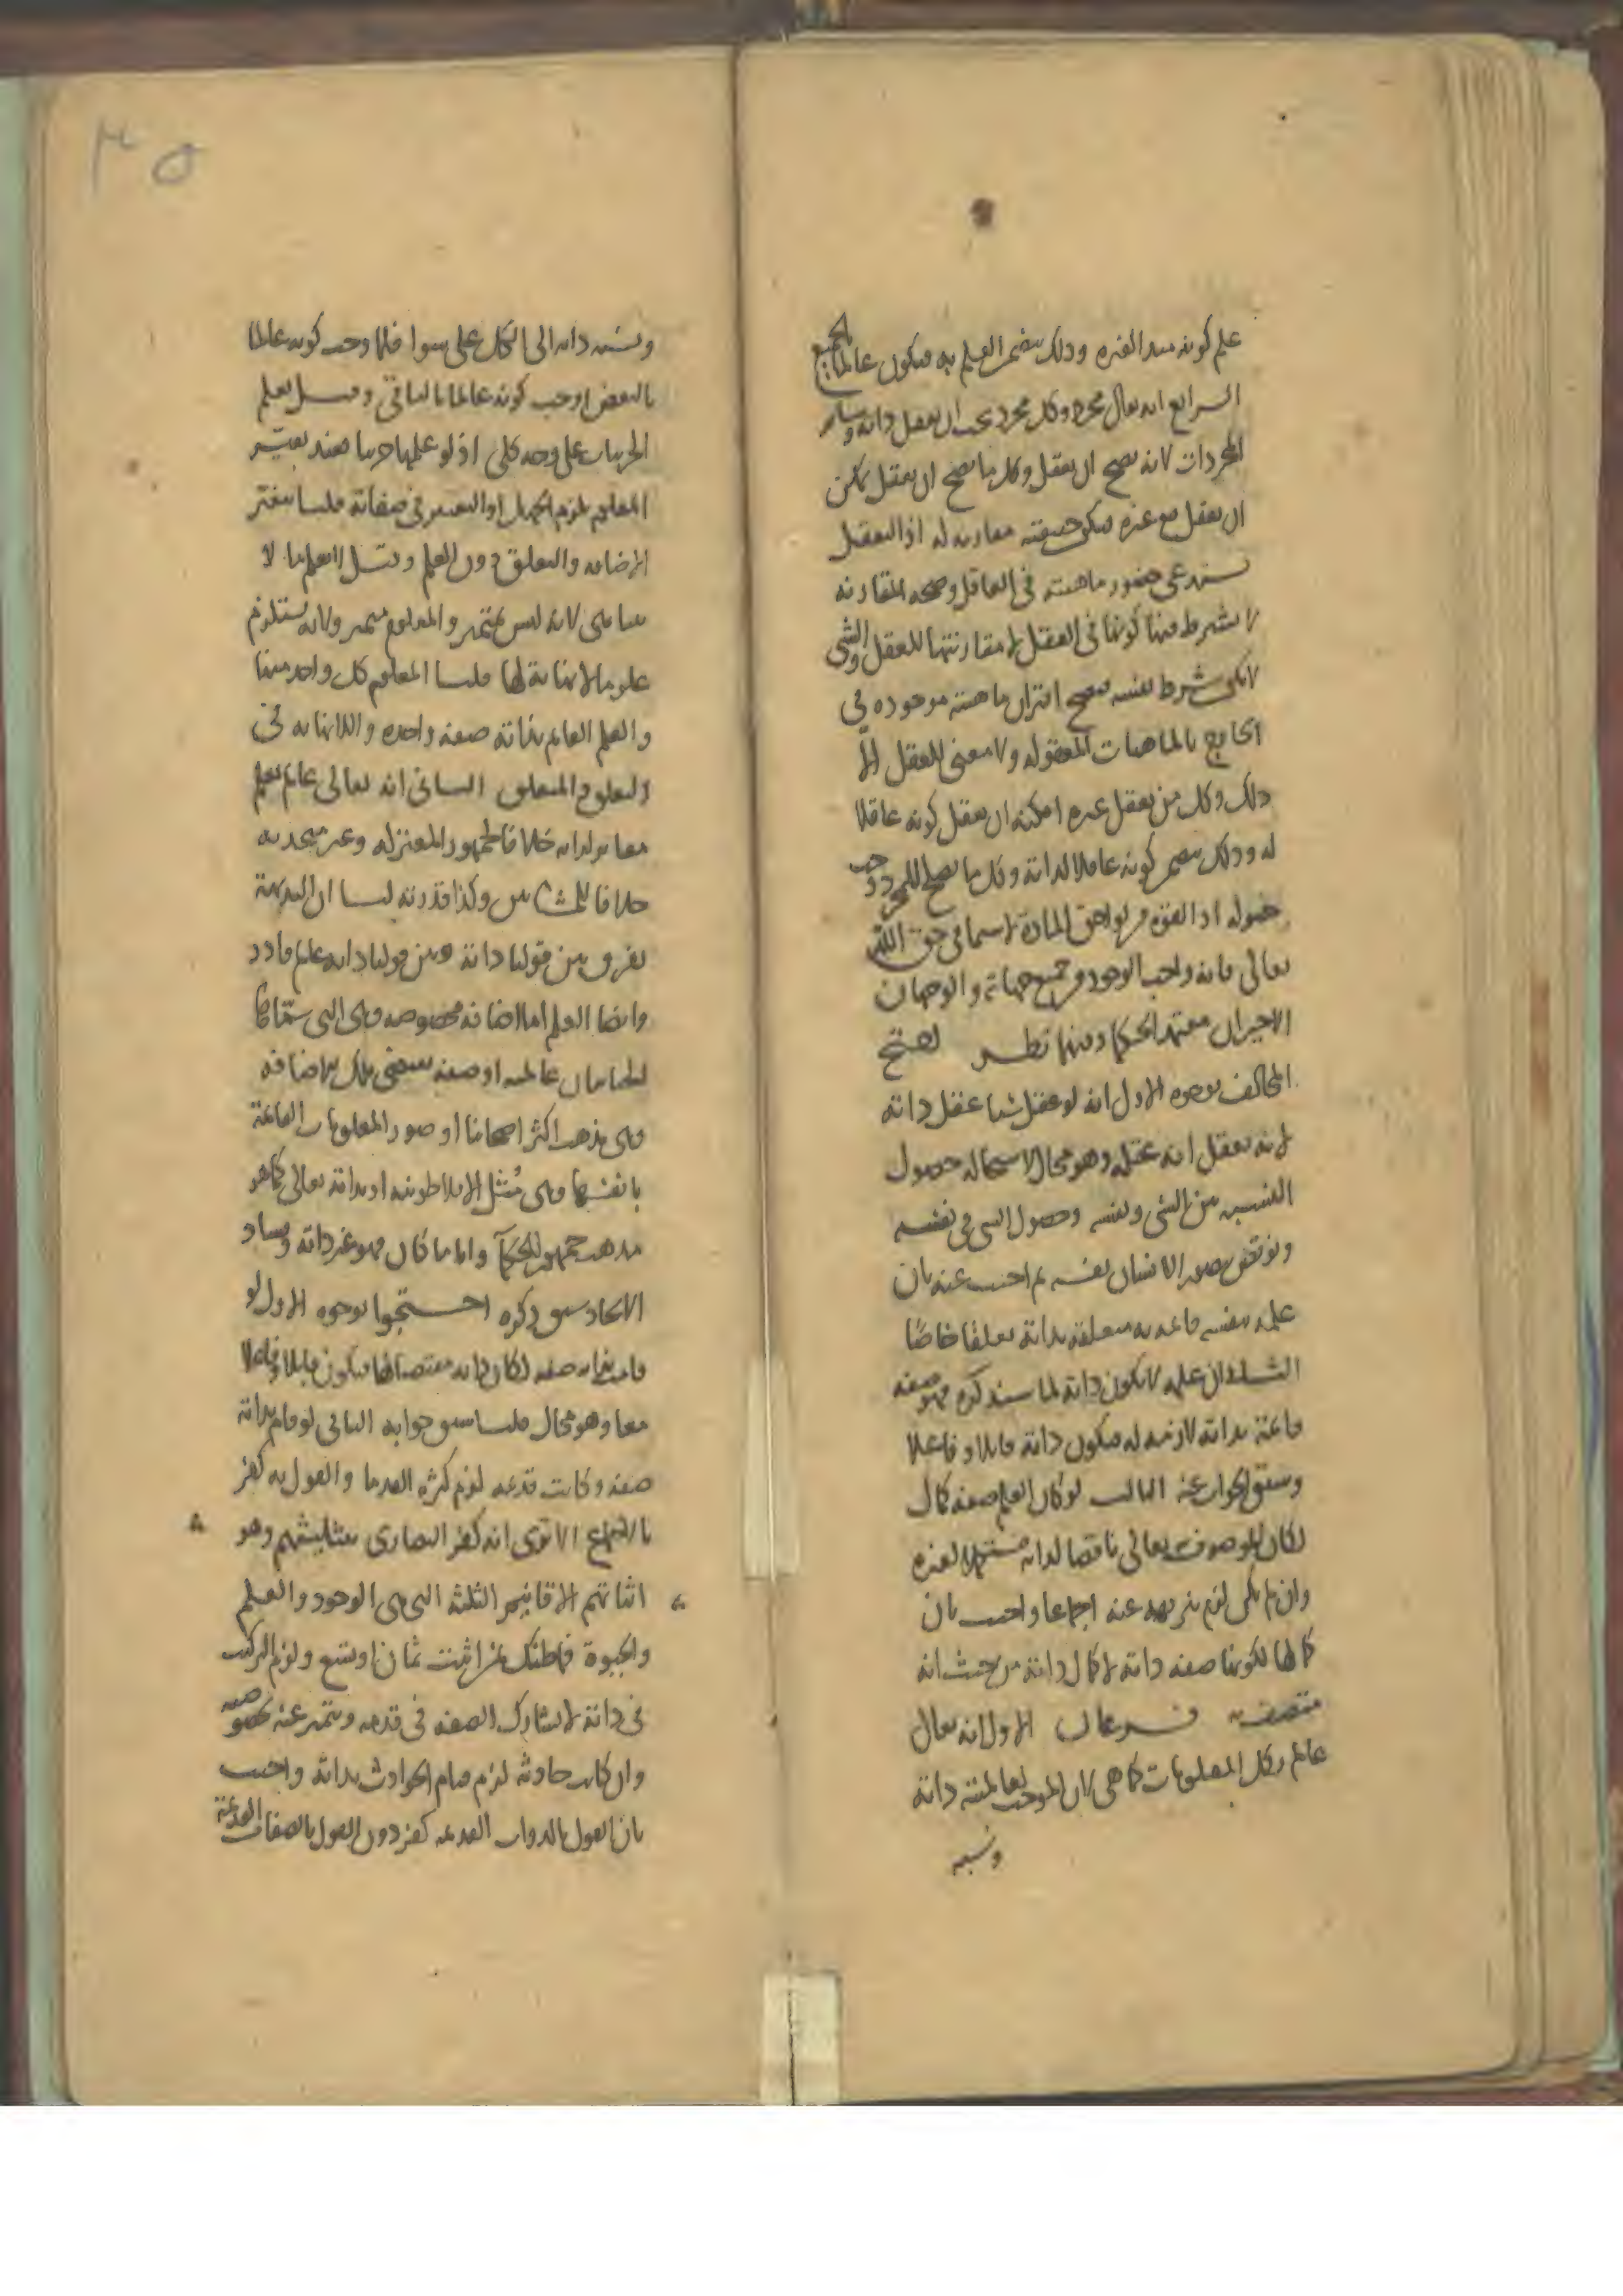 علم كونه مبدا لغيره وذلك يتضمن العلم به فيكون عالما بالجميع
الرابع انه تعالى مجرد وكل مجرد يجب ان يعقل ذاته وسائر
المجردات لانه يصح ان يعقل وكل ما يصح ان يعقل يمكن
ان يعقل مع غيره فيكون حقيقته مقارنه له اذ التعقل
يستدعى حضور ماهيته في العاقل وصحه المقارنه
لا يشترط فيها كونها في العقل لان مقارنتها للعقل والشي
لا يكون شرط نفسه فيصح اقتران ماهيته موجوده في
الخارج بالماهيات المعقوله ولا معنى للعقل الا
ذلك وكل من يعقل غيره امكنه ان يعقل كونه عاقلا
له وذلك يتضمن كونه عاقلا لذاته وكل ما يصح للمجرد وجب
حصوله اذ القوه من لواحق المادة لا سيما في حق الله
تعالى فانه واجب الوجود من جميع جهاته والوجهان
الاخيران معتمد الحكما وفيهما نظر احتج
المخالف بوجوه الاول انه لو عقل شيا عقل ذاته
لانه يعقل انه عقله وهو محال لاستحاله حصول
النسبه بين الشي ونفسه وحصول الشي في نفسه
ونوقض بتصور الانسان نفسه ثم اجيب عنه بان
علمه بنفسه صفة قائمه به متعلقه بذاته تعلقا خاصا
الثاني ان علمه لا يكون ذاته لما سنذكره فهو صفه
قائمة بذاته لازمه له فيكون ذاته قابلا وفاعلا
وسبق الجواب عنه الثالث لو كان العلم صفه كمال
لكان الموصوف به تعالى ناقصا لذاته مستكملا لغيره
وان لم يكن لزم تنزيهه عنه اجماعا واجيب بان
كمالها لكونها صفه ذاته لا كمال ذاته من حيث انه
متصف بها فرعان الاول انه تعالى
عالم بكل المعلومات كما هي لان الموجب لعالميته ذاته
ونسبه
ونسبه ذاته الى الكل على سوا فلما وجب كونه عالما
بالبعض وجب كونه عالما بالباقي وقيل يعلم
الجزييات على وجه كلى اذ لو علمها جزييا فعند تغير
المعلوم يلزم الجهل او التغير في صفاته قلنا يتغير
الاضافه والتعلق دون العلم وقيل لا يعلم ما لا
يتناهى لانه ليس بمتميز والمعلوم متميز ولانه يستلزم
علوما لا نهاية لها قلنا المعلوم كل واحد منها
والعلم القائم بذاته صفه واحده واللانهايه في
التعلق والمتعلق الثاني انه تعالى عالم بعلم
مغاير لذاته خلافا لجمهور المعتزله وغير متحد به
خلافا للمشائين وكذا قدرته لنا ان البديهة
تفرق بين قولنا ذاته وبين قولنا ذاته عالم قادر
وايضا العلم اما اضافه مخصوصه وهى التى سماها
الجبائيان عالميه او صفه تقتضى تلك الاضافه
وهى مذهب اكثر اصحابنا او صور المعلومات القائمة
بانفسها وهى المثل الافلاطونيه او بذاته تعالى كما هو
مذهب جمهور الحكما وايا ما كان فهو غير ذاته وفساد
الاتحاد سبق ذكره احتجوا بوجوه الاول لو
قامت بذاته صفه لكان ذاته مقتضيا لها فيكون قابلا وفاعلا
معا وهو محال قلنا سبق جوابه الثاني لو قام بذاته
صفه وكانت قديمه لزم كثره القدما والقول به كفر
بالاجماع الا ترى انه كفر النصارى بتثليثهم وهو
اثباتهم الاقانيم الثلثه التى هى الوجود والعلم
والحيوة فما ظنك بمن اثبت ثمان او تسع ولزم التركيب
في ذاته لانه يشارك الصفه في قدمه ويتميز عنه بخصوصيه
وان كانت حادثه لزم قيام الحوادث بذاته واجيب
بان القول بالذوات القديمه كفر دون القول بالصفات القديمة